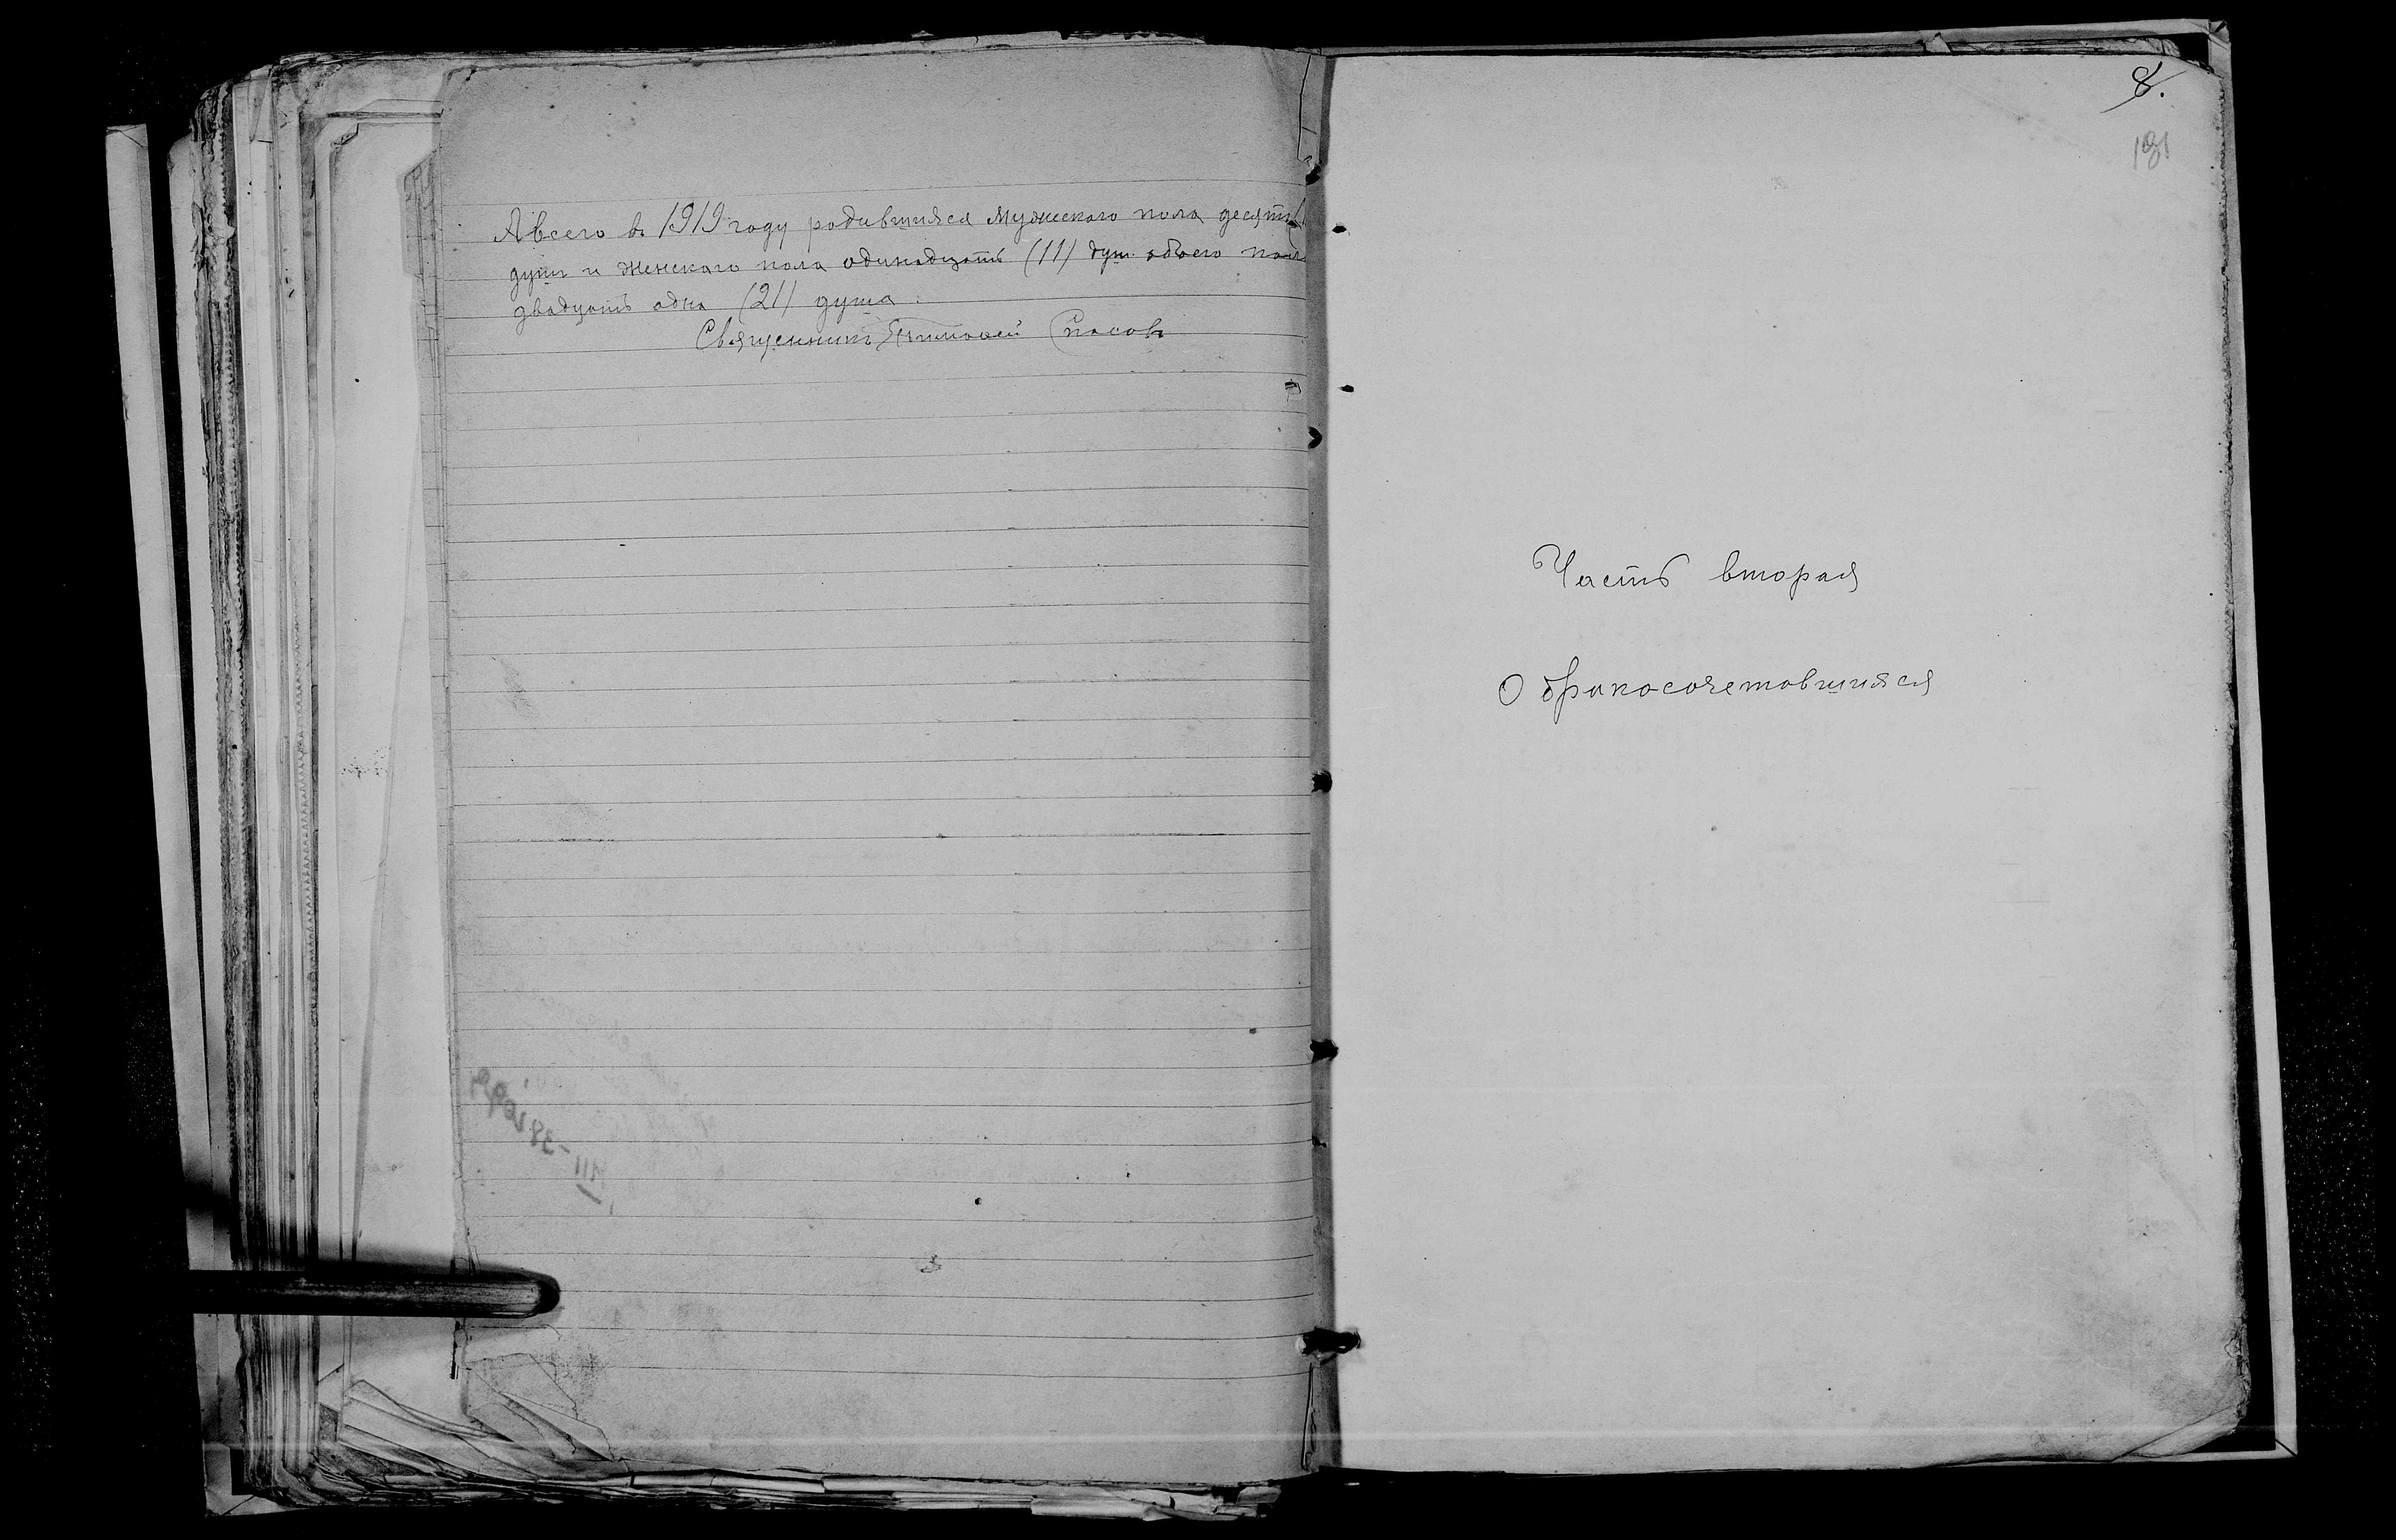 А всего в 1919 году родившияся мужескаго пола десять
душ и женскаго пола одинадцать (11) душ. обоего пола
двадцать одна (21) душа.
Священникъ Тимофей Спасов
8.
181
Часть вторая
О бракосочетовшияся